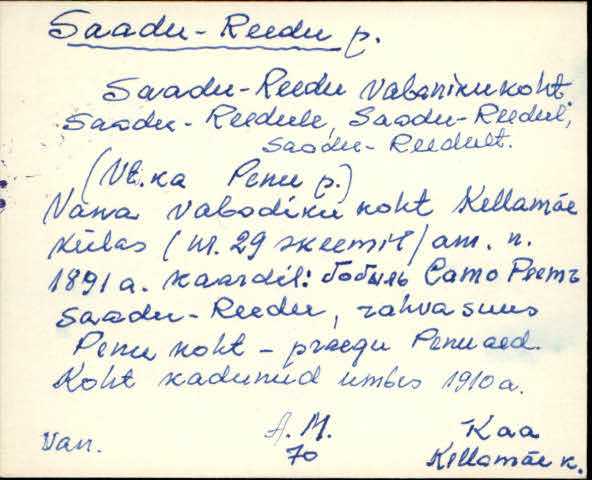 Saadu-Reedu p.
Saadu-Reedu vabaniku koht
Saadu-Reedule, Saadu-Reedul,
Saadu-Reedult.
(Vt. ka Penu p.)
Vana vabadiku koht Kellamäe
külas (nr. 29 skeemil) am. n.
1891 a. kaardil: бобыль Сато Реетъ
Saadu-Reedu, rahva suus
Penu koht - praegu Penuaed.
Koht kadunud umbes 1910 a.
Van.
A. M.
70
Kaa
Kellamäe k.